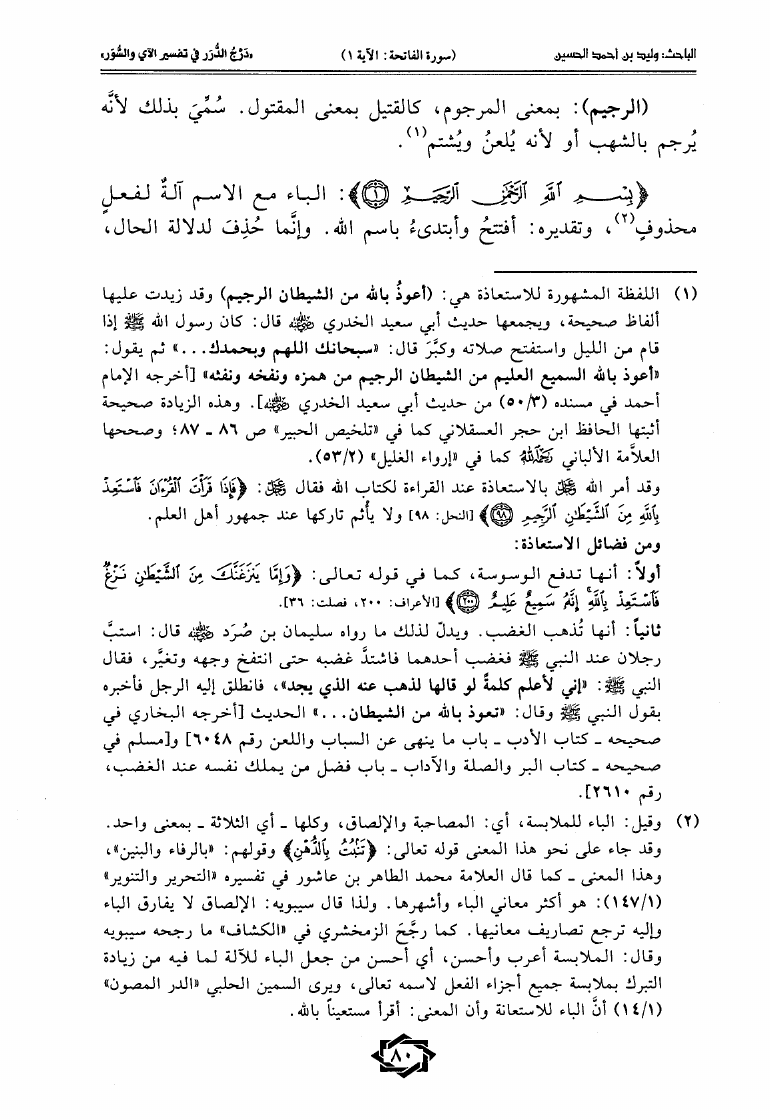 الباحث: وليد بن أحمد الحسين (سورة الفاتحة: الآية ١) «دَرْجُ الدُّرَر في تفسير الآي والسُّوَر»
(الرجيم): بمعنى المرجوم، كالقتيل بمعنى المقتول. سُمِّيَ بذلك لأنَّه
يُرجم بالشهب أو لأنه يُلعنُ ويُشتم(١).
﴿بِسْمِ ٱللَّهِ ٱلرَّحْمَٰنِ ٱلرَّحِيمِ ۝١﴾: الباء مع الاسم آلةٌ لفعلٍ
محذوفٍ(٢)، وتقديره: أفتتحُ وأبتدىءُ باسم الله. وإنَّما حُذِفَ لدلالة الحال،
(١) اللفظة المشهورة للاستعاذة هي: (أعوذُ بالله من الشيطان الرجيم) وقد زيدت عليها
ألفاظ صحيحة، ويجمعها حديث أبي سعيد الخدري رضي الله عنه قال: كان رسول الله ﷺ إذا
قام من الليل واستفتح صلاته وكبَّرَ قال: «سبحانك اللهم وبحمدك...» ثم يقول:
«أعوذ بالله السميع العليم من الشيطان الرجيم من همزه ونفخه ونفثه» [أخرجه الإمام
أحمد في مسنده (٥٠/٣) من حديث أبي سعيد الخدري رضي الله عنه]. وهذه الزيادة صحيحة
أثبتها الحافظ ابن حجر العسقلاني كما في «تلخيص الحبير» ص ٨٦ ـ ٨٧؛ وصححها
العلاَّمة الألباني رحمه الله كما في «إرواء الغليل» (٥٣/٢).
وقد أمر الله ﷻ بالاستعاذة عند القراءة لكتاب الله فقال ﷻ: ﴿فَإِذَا قَرَأْتَ ٱلْقُرْءَانَ فَٱسْتَعِذْ
بِٱللَّهِ مِنَ ٱلشَّيْطَٰنِ ٱلرَّجِيمِ ۝٩٨﴾ [النحل: ٩٨] ولا يأثم تاركها عند جمهور أهل العلم.
ومن فضائل الاستعاذة:
أولاً: أنها تدفع الوسوسة، كما في قوله تعالى: ﴿وَإِمَّا يَنزَغَنَّكَ مِنَ ٱلشَّيْطَٰنِ نَزْغٌ
فَٱسْتَعِذْ بِٱللَّهِ إِنَّهُ سَمِيعٌ عَلِيمٌ ۝٢٠٠﴾ [الأعراف: ٢٠٠، فصلت: ٣٦].
ثانياً: أنها تُذهب الغضب. ويدلّ لذلك ما رواه سليمان بن صُرَد رضي الله عنه قال: استبَّ
رجلان عند النبي ﷺ فغضب أحدهما فاشتدَّ غضبه حتى انتفخ وجهه وتغيَّر، فقال
النبي ﷺ: «إني لأعلم كلمةً لو قالها لذهب عنه الذي يجد»، فانطلق إليه الرجل فأخبره
بقول النبي ﷺ وقال: «تعوذ بالله من الشيطان...» الحديث [أخرجه البخاري في
صحيحه ـ كتاب الأدب ـ باب ما ينهى عن السباب واللعن رقم ٦٠٤٨] و[مسلم في
صحيحه ـ كتاب البر والصلة والآداب ـ باب فضل من يملك نفسه عند الغضب،
رقم ٢٦١٠].
(٢) وقيل: الباء للملابسة، أي: المصاحبة والإلصاق، وكلها ـ أي الثلاثة ـ بمعنى واحد.
وقد جاء على نحو هذا المعنى قوله تعالى: ﴿تَنۢبُتُ بِٱلدُّهْنِ﴾ وقولهم: «بالرفاء والبنين»،
وهذا المعنى ـ كما قال العلامة محمد الطاهر بن عاشور في تفسيره «التحرير والتنوير»
(١٤٧/١): هو أكثر معاني الباء وأشهرها. ولذا قال سيبويه: الإلصاق لا يفارق الباء
وإليه ترجع تصاريف معانيها. كما رجَّحَ الزمخشري في «الكشاف» ما رجحه سيبويه
وقال: الملابسة أعرب وأحسن، أي أحسن من جعل الباء للآلة لما فيه من زيادة
التبرك بملابسة جميع أجزاء الفعل لاسمه تعالى، ويرى السمين الحلبي «الدر المصون»
(١٤/١) أنَّ الباء للاستعانة وأن المعنى: أقرأ مستعيناً بالله.
٨٠